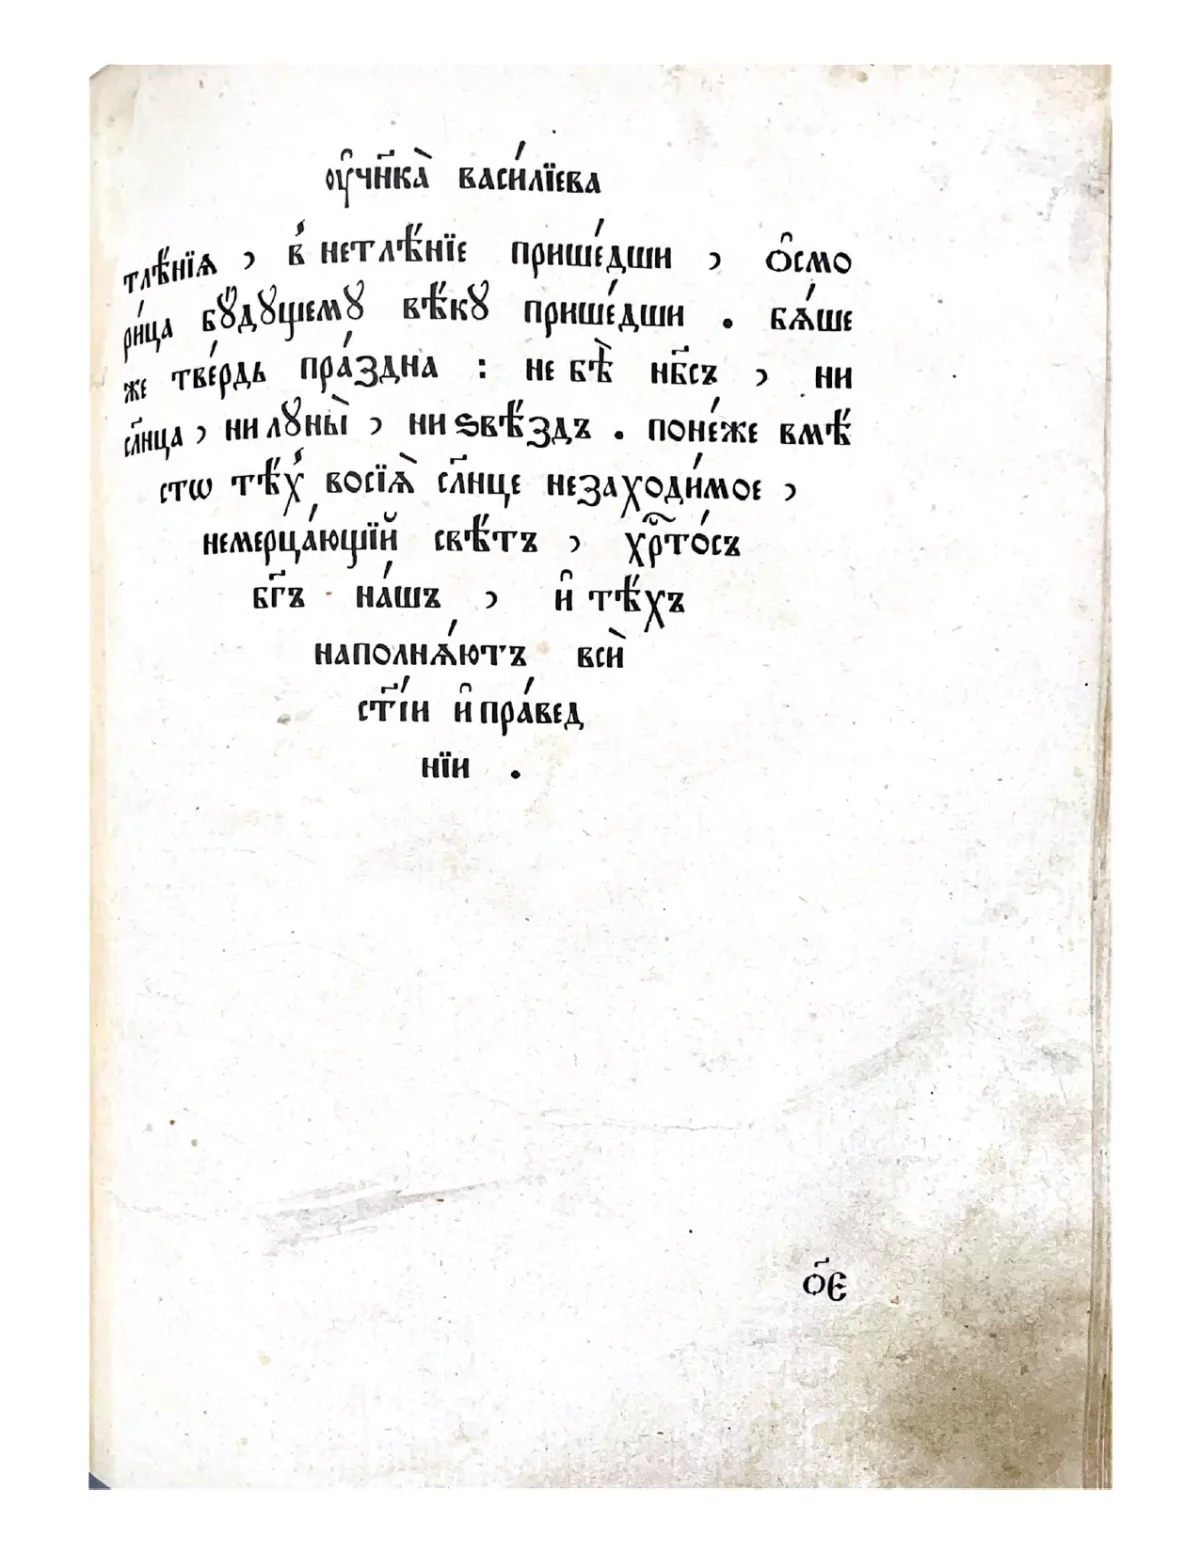 оу҆чн҃ка̀ васи́лїева
тлѣ́нїѧ , в̾ нетлѣ́нїе прише́дши , ѻ҆смо
ри́ца бꙋ́дꙋщемꙋ вѣ́кꙋ прише́дши . бѧ́ше
же тве́рдь пра́здна : не бѣ̀ нб҃съ , ни
сл҃нца , ни лꙋны̀ , ни ѕвѣ́здъ . поне́же вмѣ́
стѡ тѣ́х̾ восїѧ̀ сл҃нце незаходи́мое ,
немерца́ющїй свѣ́тъ , хрⷭ҇то́съ
бг҃ъ на́шъ , и҆ тѣ́хъ
наполнѧ́ютъ всѝ
ст҃і́и и҆ пра́вед
нїи .
ѻ҃є